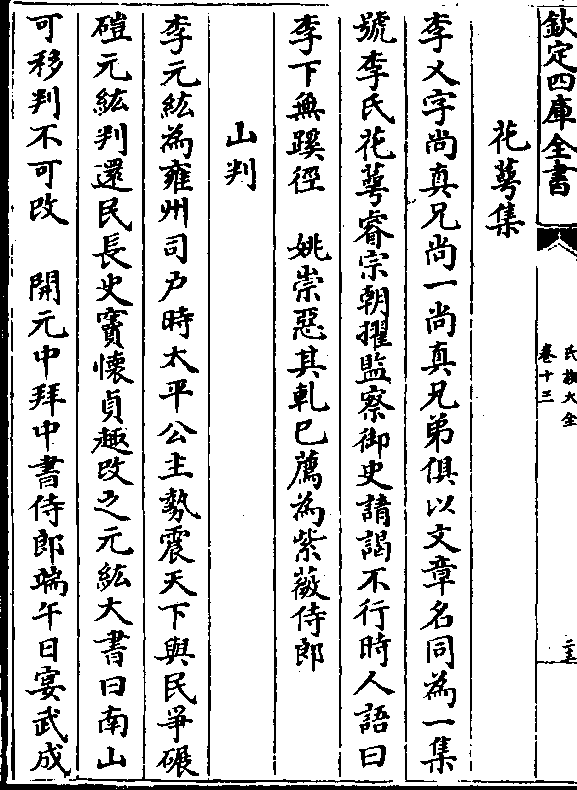 欽定四庫全書
氏族大全
卷十三
花萼集
李乂字尚真兄尚一尚真兄弟俱以文章名同為一集
號李氏花萼睿宗朝擢監察御史請謁不行時人語曰
李下無蹊徑　姚崇惡其軋己薦為紫薇侍郎
山判
李元紘為雍州司户時太平公主勢震天下與民爭碾
磑元紘判還民長史竇懷貞趣改之元紘大書曰南山
可移判不可改　開元中拜中書侍郎端午日宴武成